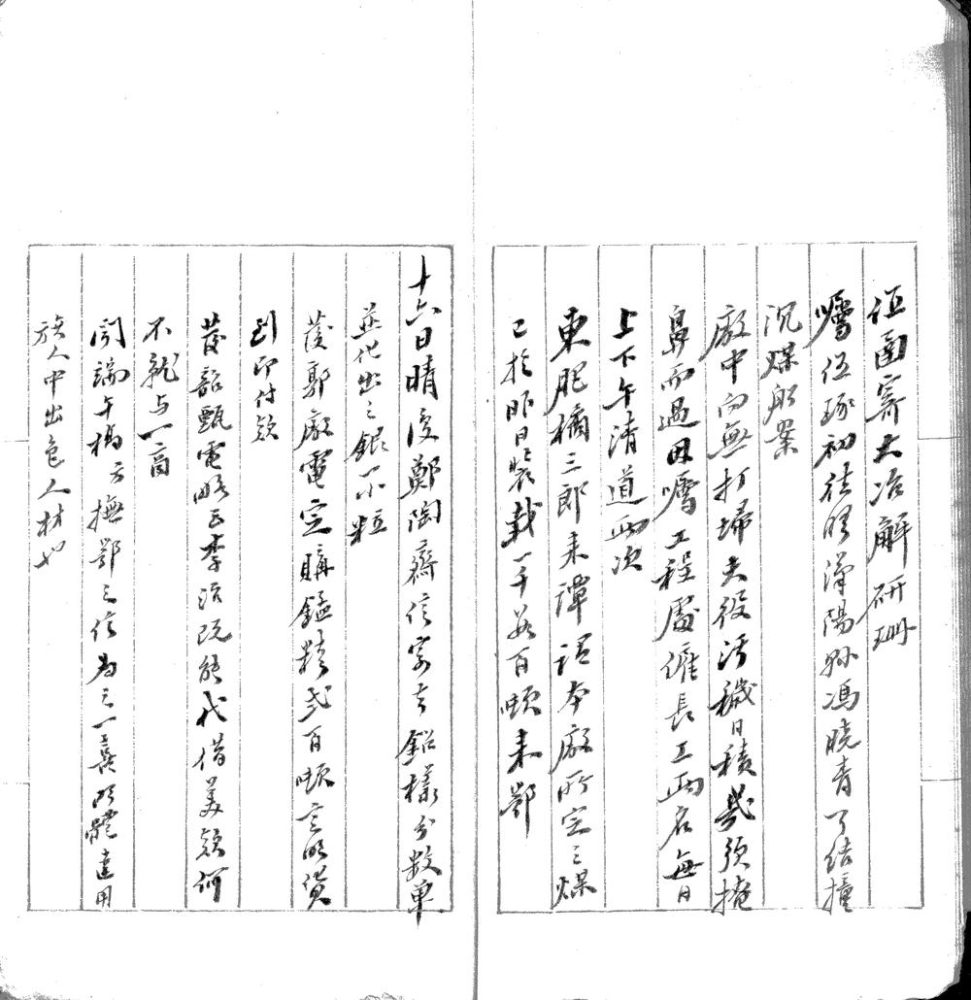 鉦圖寄大冶解研珊
囑伍琢初往晤漢陽縣馮曉青了結撞
沉煤船案
廠中向無打掃夫役污穢日積幾須掩
鼻而過因囑工程處僱長工兩名每日
上下午清道兩次
東肥橘三郎來譚謂本廠所定之煤
已於昨日裝載一千數百噸來鄂
十六日晴復鄭陶齋信寄去鉛樣分數單
並化出之銀一小粒
復郭廠電定購錳精貳百噸言明貨
到即付款
發韶甄電略云李治既能代借美款何
不就與一商
聞端午橋方撫鄂之信為之一喜明體達用
旗人中出色人材也